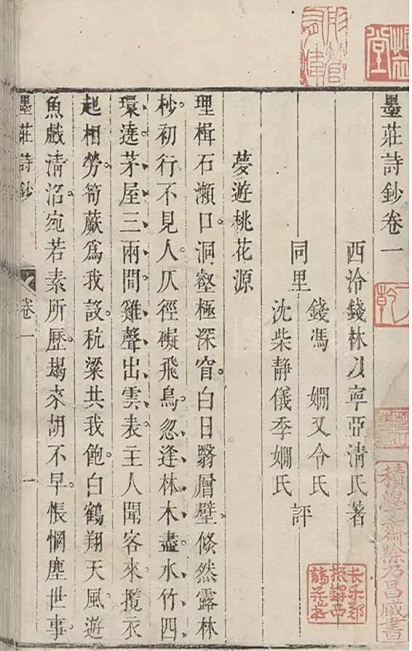 墨莊詩鈔卷一
西泠錢林以寧亞清氏著
錢馮嫻又令氏
同里 評
沈柴靜儀季嫻氏
夢遊桃花源
理楫石瀨口洞壑極深窅。白日翳層壁倐然露林
杪初行不見人。仄徑礙飛鳥。忽逢林木盡水竹四
環遶茅屋三兩間雞聲出雲表主人聞客來攬衣
起相勞。筍蕨爲我設。秔粱共我飽。白鶴翔天風。遊
魚戲清沼。宛若素所歷。朅來胡不早。悵惘塵世事
墨莊詩鈔 卷一 一
乾
積學齋徐乃昌藏書
長樂鄭振鐸西諦藏書